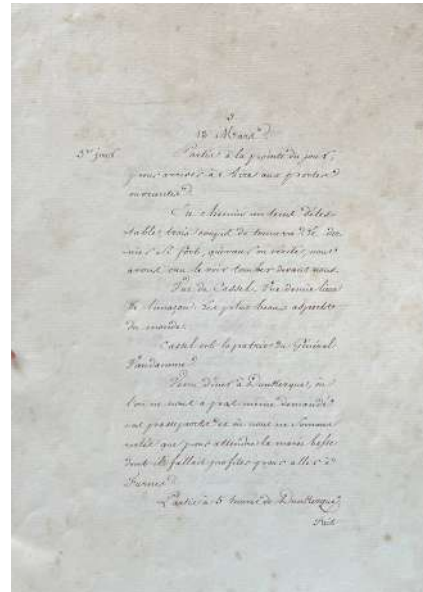 3
12 Mars.
3e jour. Partis à la pointe du jour,
pour arriver à Aire aux portes
ouvrantes.
En chemin un tems détes-
table, trois coups de tonnerre. Le der-
nier si fort, qu'avans en voiture, nous
avons cru le voir tomber devant nous.
Vue de Cassel. Une demie lieue
de limaçon. Les plus beaux aspects
du monde.
Cassel est la patrie du Général
Vandamme.
Venu dîner à Dunkerque, où
l'on ne nous a pas même demandé
nos passeports et où nous ne sommes
restés que pour attendre la marée basse
dont il fallait profiter pour aller à
Furnes.
Partis à 5 heures de Dunkerque.